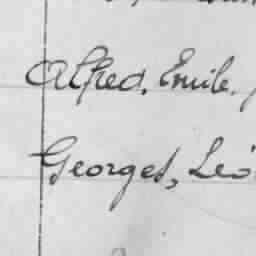 Alfred, Emile,
Georges, Léo